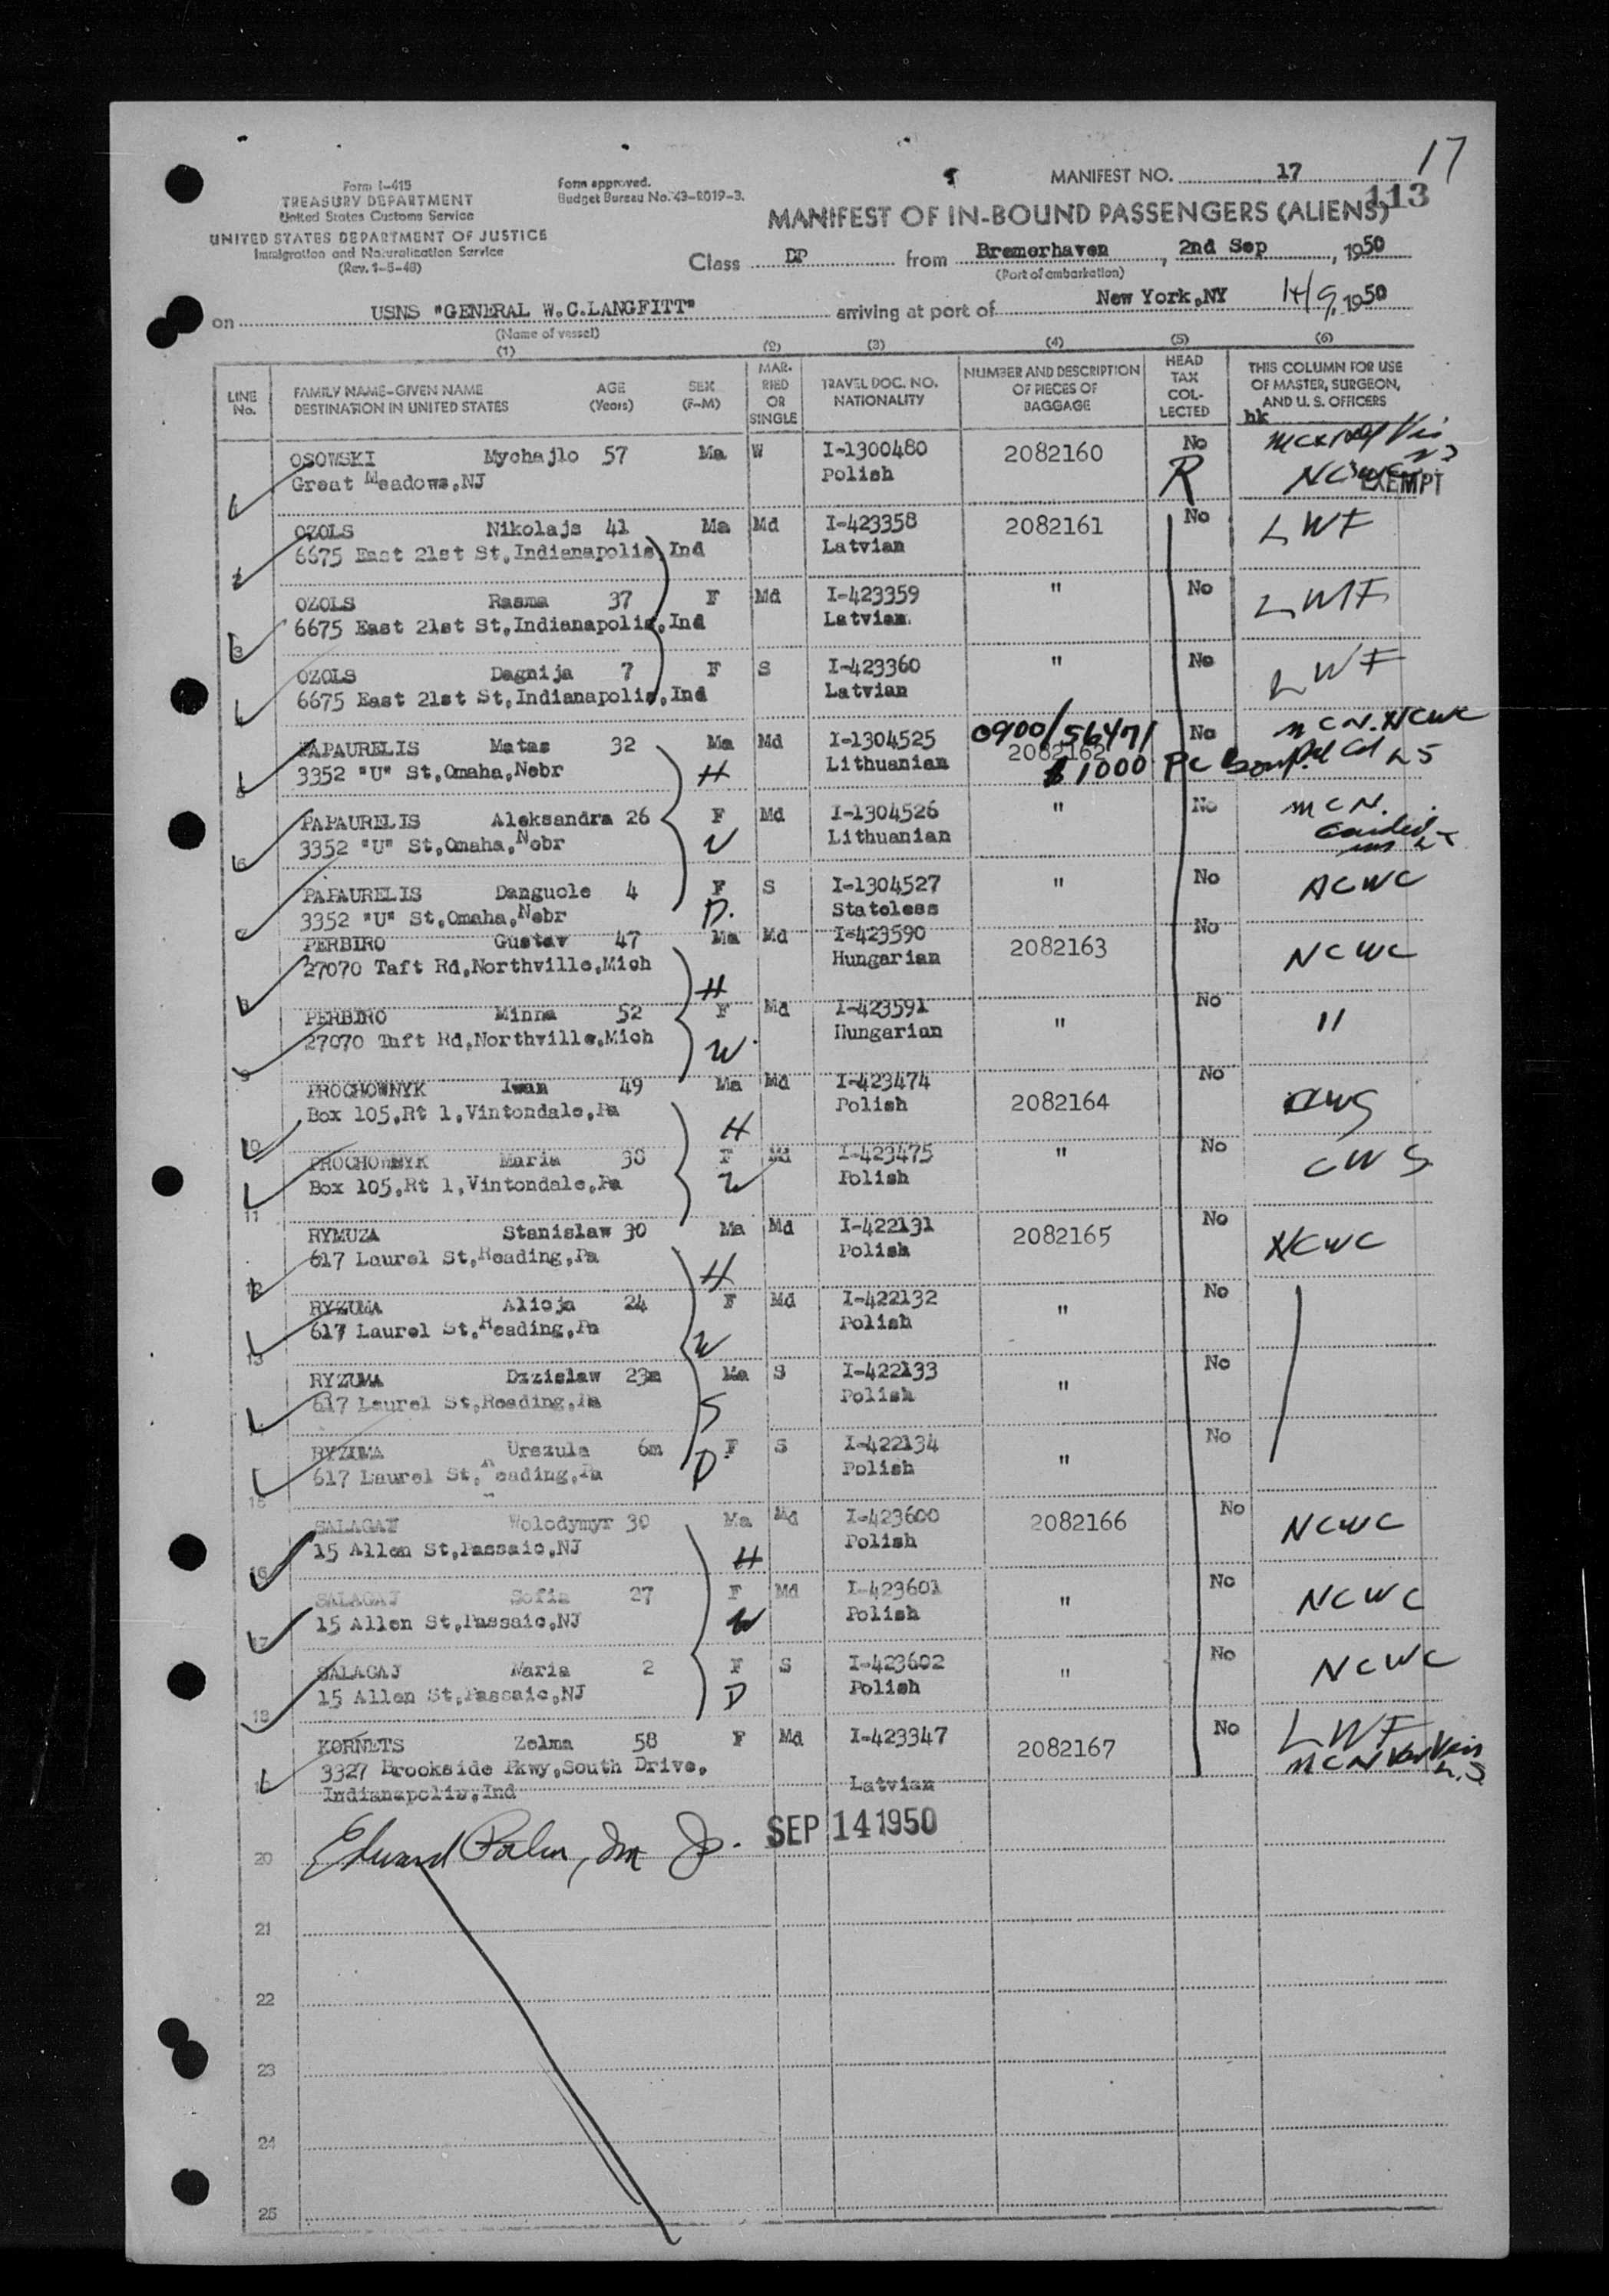 17
MANIFEST NO. 17
113
Form I-415
TREASURY DEPARTMENT
United States Customs Service
UNITED STATES DEPARTMENT OF JUSTICE
Immigration and Naturalization Service
(Rev. 1-5-48)
Form approved.
Budget Bureau No. 43-R019-3.
MANIFEST OF IN-BOUND PASSENGERS (ALIENS)
Class DP from Bremerhaven, 2nd Sep, 1950
(Port of embarkation)
on USNS "GENERAL W.C.LANGFITT" arriving at port of New York,NY 14/9, 1950
(Name of vessel)
(1) (2) (3) (4) (5) (6)
LINE No. FAMILY NAME-GIVEN NAME DESTINATION IN UNITED STATES AGE (Years) SEX (F-M) MARRIED OR SINGLE TRAVEL DOC. NO. NATIONALITY NUMBER AND DESCRIPTION OF PIECES OF BAGGAGE HEAD TAX COLLECTED THIS COLUMN FOR USE OF MASTER, SURGEON, AND U. S. OFFICERS
hk
OSOWSKI Mychajlo 57 Ma W I-1300480 2082160 No
Great Meadows,NJ Polish R EXEMPT
1
OZOLS Nikolajs 41 Ma Md I-423358 2082161 No LWF
6675 East 21st St,Indianapolis,Ind Latvian
2
OZOLS Rasma 37 F Md I-423359 " No LWF
6675 East 21st St,Indianapolis,Ind Latvian
3
OZOLS Dagnija 7 F S I-423360 " No LWF
6675 East 21st St,Indianapolis,Ind Latvian
4
0900/56471
PAPAURELIS Matas 32 Ma Md I-1304525 2082162 No MCN. NCWC
3352 "U" St,Omaha,Nebr H Lithuanian $1000
5
PAPAURELIS Aleksandra 26 F Md I-1304526 " No MCN.
3352 "U" St,Omaha,Nebr W Lithuanian
6
PAPAURELIS Danguole 4 F S I-1304527 " No NCWC
3352 "U" St,Omaha,Nebr D. Stateless
PERBIRO Gustav 47 Ma Md I-423590 2082163 No NCWC
27070 Taft Rd,Northville,Mich H Hungarian
8
PERBIRO Minna 52 F Md I-423591 " No "
27070 Taft Rd,Northville,Mich W Hungarian
9
PROCHOWNYK Iwan 49 Ma Md I-423474 2082164 No CWS
Box 105,Rt 1,Vintondale,Pa H Polish
10
PROCHOWNYK Maria 38 F Md I-423475 " No CWS
Box 105,Rt 1,Vintondale,Pa W Polish
11
RYMUZA Stanislaw 30 Ma Md I-422131 2082165 No NCWC
617 Laurel St,Reading,Pa H Polish
12
RYZUMA Alicja 24 F Md I-422132 " No
617 Laurel St,Reading,Pa W Polish
13
RYZUMA Dzzislaw 23m Ma S I-422133 " No
617 Laurel St,Reading,Pa S Polish
RYZUMA Urszula 6m F S I-422134 " No
617 Laurel St,Reading,Pa D Polish
15
SALAGAJ Wolodymyr 30 Ma Md I-423600 2082166 No NCWC
15 Allen St,Passaic,NJ H Polish
16
SALAGAJ Sofia 27 F Md I-423601 " No NCWC
15 Allen St,Passaic,NJ W Polish
17
SALAGAJ Maria 2 F S I-423602 " No NCWC
15 Allen St,Passaic,NJ D Polish
18
KORNETS Zelma 58 F Md I-423347 2082167 No LWF
3327 Brookside Pkwy,South Drive,
Indianapolis,Ind Latvian
19
SEP 14 1950
20
21
22
23
24
25